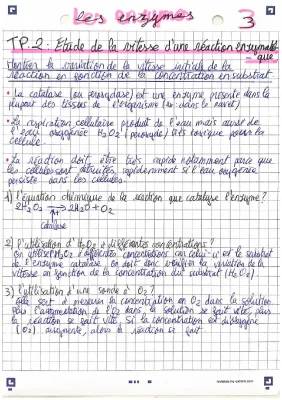 les enzymes
3
TP.2: Etude de la vitesse d'une réaction enzymatique
Montrer la variation de la vitesse initiale de la
réaction en fonction de la concentration en substrat
- La catalase (ou peroxydase) est une enzyme présente dans la
plupart des tissus de l'organisme (ici dans le navet)
- La respiration cellulaire produit de l'eau mais aussi de
l'eau oxygénée H2O2 (peroxyde) très toxique pour la
cellule.
- La réaction doit être très rapide notamment parce que
les cellules sont détruites rapidement si l'eau oxygénée
persiste dans les cellules.
1) l'équation chimique de la réaction que catalyse l'enzyme?
2H2O2 → 2H2O + O2
catalase
2) l'utilisation d'H2O2 à différentes concentrations?
On utilise H2O2 à différentes concentrations car celui-ci est le substrat
de l'enzyme catalase. On doit donc vérifier la variation de la
vitesse en fonction de la concentration du substrat (H2O2).
3) l'utilisation d'une sonde à O2?
elle sert à mesurer la concentration en O2 dans la solution
plus l'augmentation de l'O2 dans la solution se fait vite, plus
la réaction se fait vite. Si la concentration en dioxygène
(O2) augmente, alors la réaction se fait